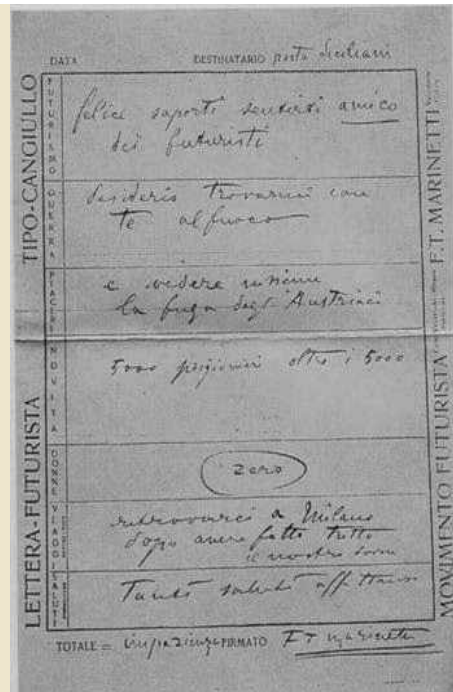 DATA DESTINATARIO poeta Siciliani
TIPO-CANGIULLO
LETTERA-FUTURISTA
FUTURISMO
felice saperti sentirti amico
dei futuristi
GUERRA
desiderio trovarmi con
te al fuoco
PIACERE
e vedere insieme
la fuga degli Austriaci
NOVITA
5000 prigionieri oltre i 5000
DONNE
zero
VIAGGI
ritrovarci a Milano
dopo avere fatto tutto
il nostro
SALUTI
Tanti saluti
TOTALE = impazienza FIRMATO F T Marinetti
MOVIMENTO FUTURISTA
F.T. MARINETTI